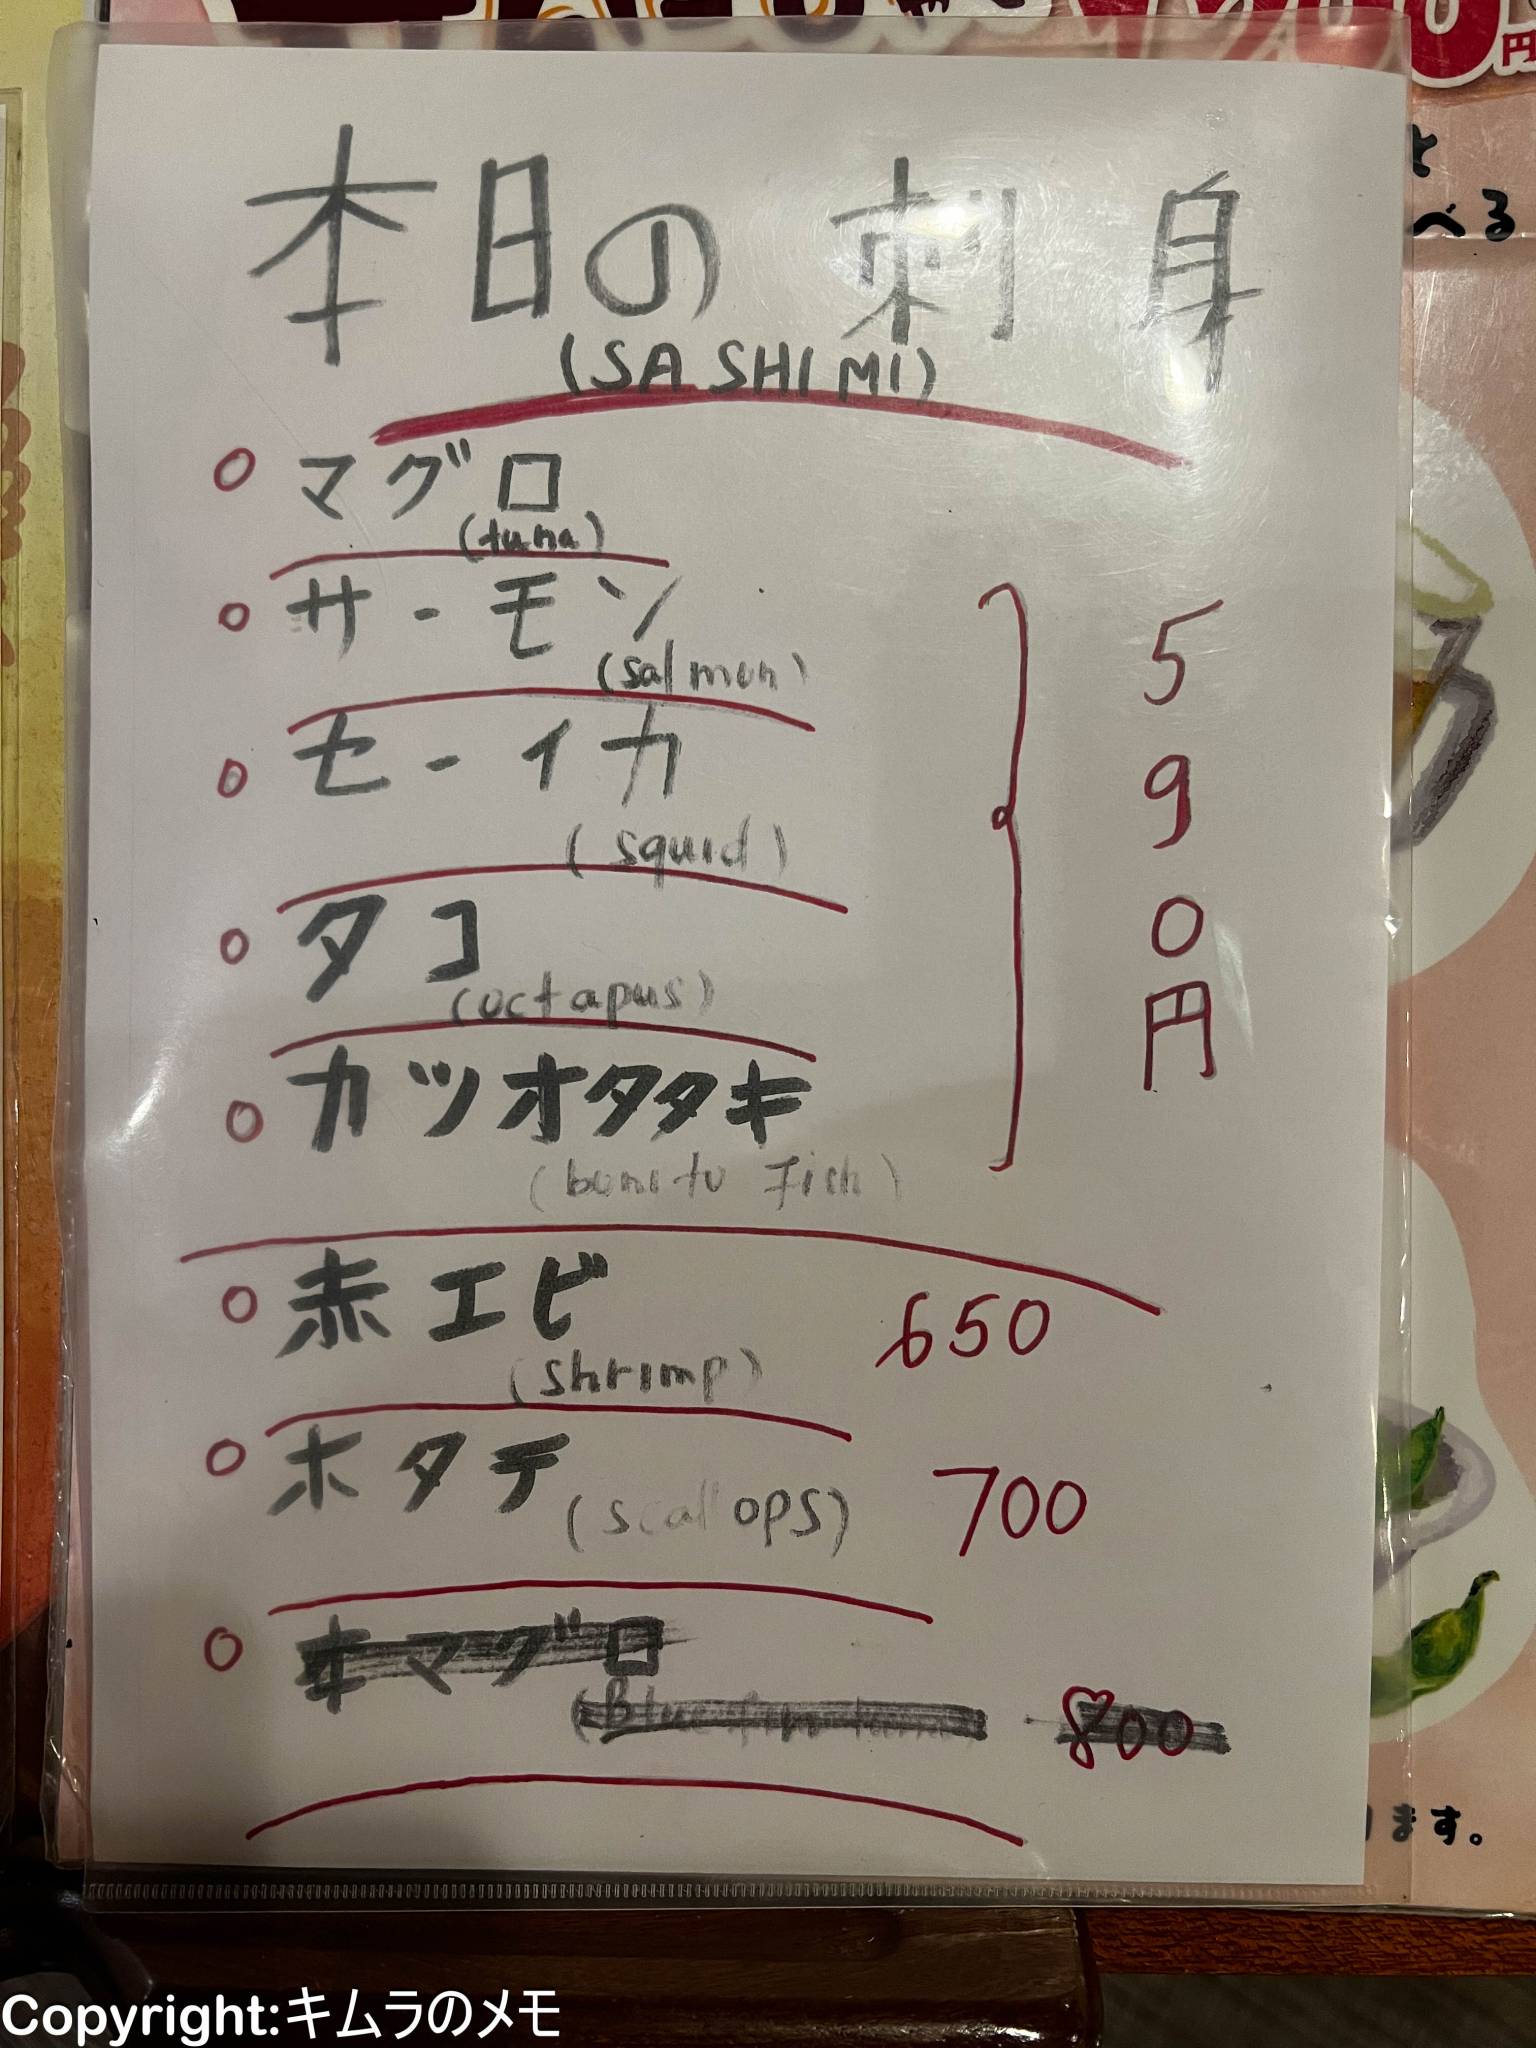 本日の刺身
(SASHIMI)
○ マグロ
(tuna)
○ サーモン
(salmon)
○ セーイカ
(squid)
○ タコ
(octapus)
○ カツオタタキ
(bonito fish)
590円
○ 赤エビ 650
(shrimp)
○ ホタテ (scallops) 700
○ 本マグロ
(Blue fin tuna) 800
円
と
べる
ます。
Copyright:キムラのメモ